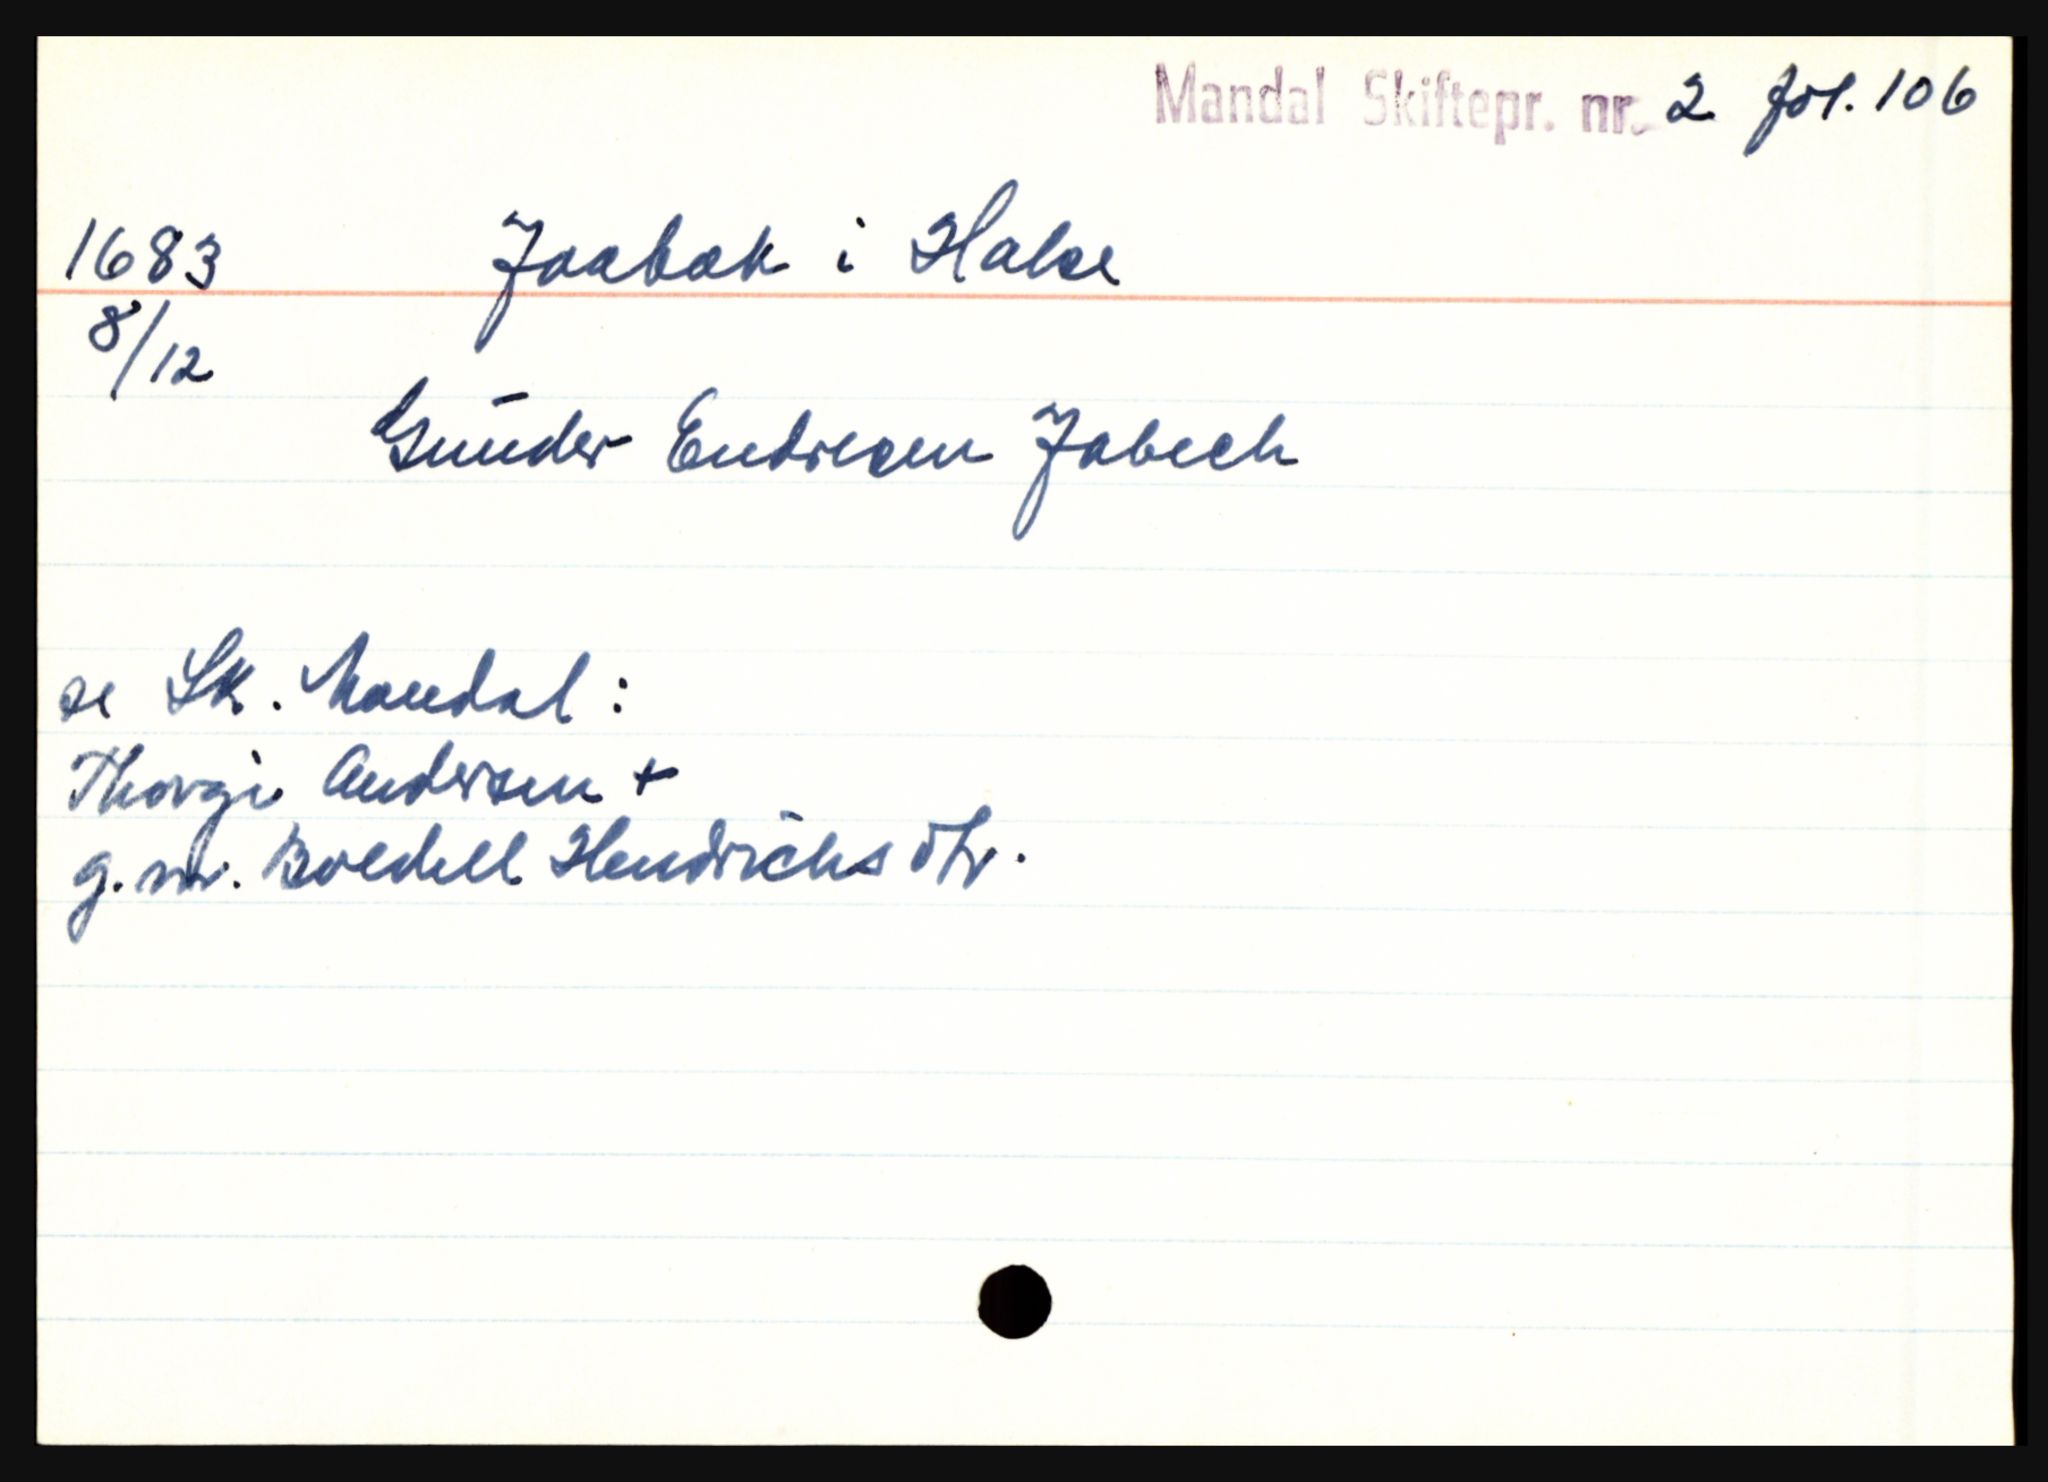 Mandal Skiftepr. nr. 2 fol. 106
1683 Jaabæk i Halse
8/12
Gunder Endresen Jabech
se Sk. Mandal:
Thorgi Andersen +
g. m. Boedell Hendrichs dtr.